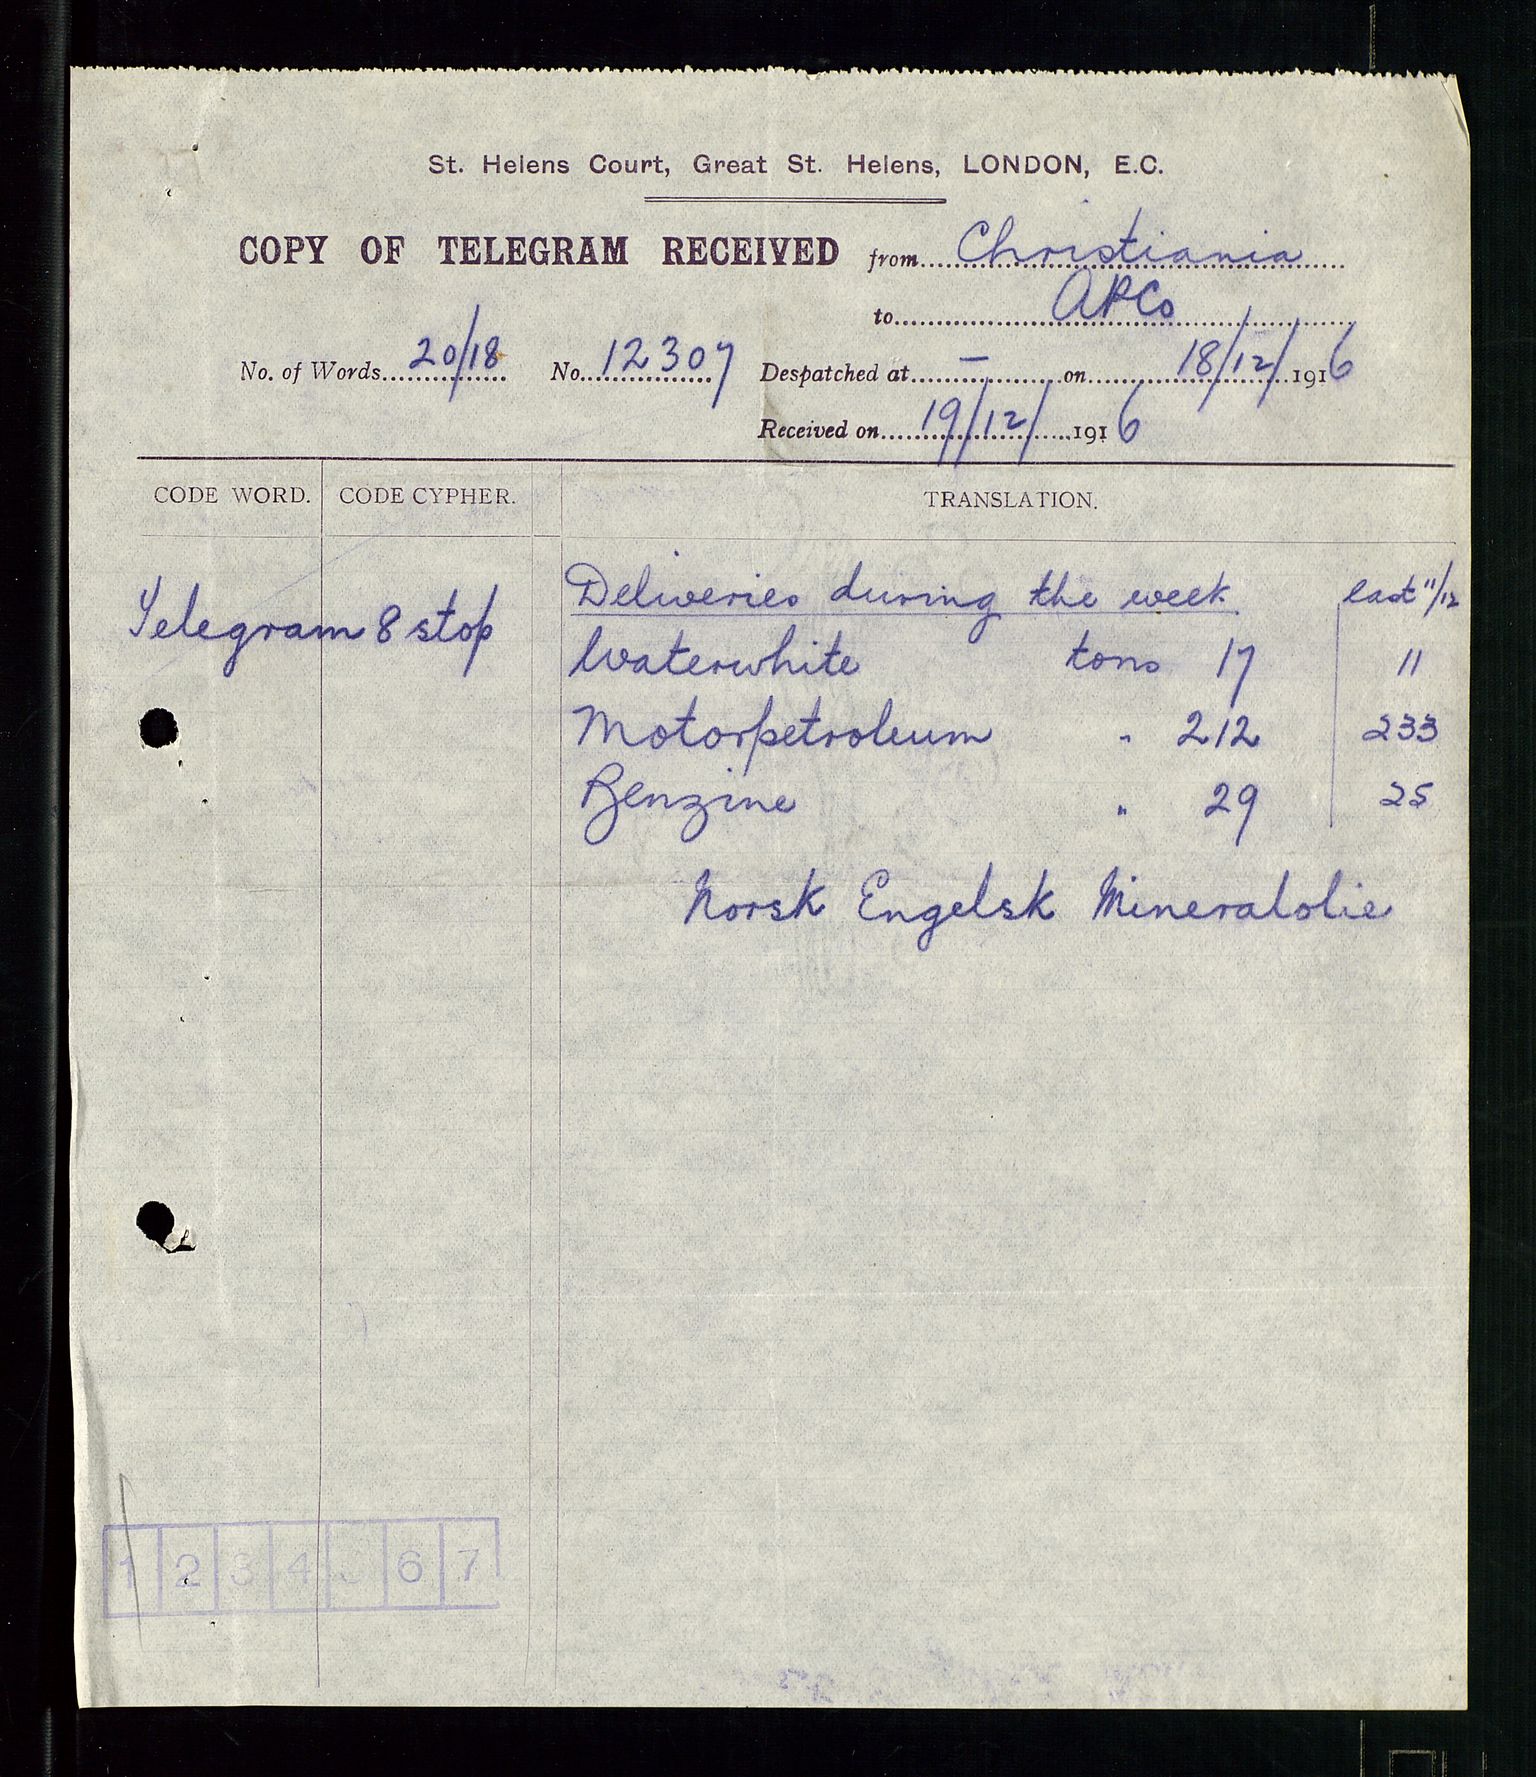 St. Helens Court, Great St. Helens, LONDON, E.C.
COPY OF TELEGRAM RECEIVED from Christiania
to APCo
No. of Words 20/18 No. 12307 Despatched at – on 18/12/1916
Received on 19/12/1916
CODE WORD. CODE CYPHER. TRANSLATION.
Deliveries during the week last 11/12
Telegram 8 stop
Waterwhite tons 17 11
Motorpetroleum " 212 233
Benzine " 29 25
Norsk Engelsk Mineralolie
1 2 3 4 6 7